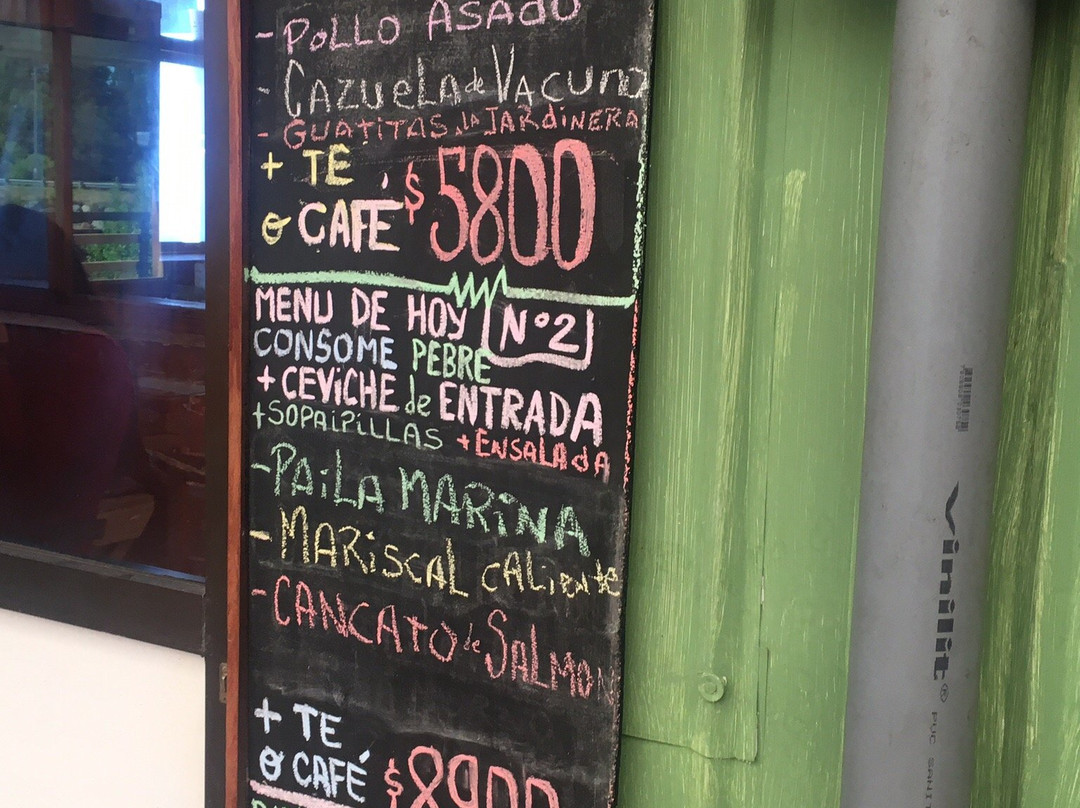 - POLLO ASADO
- CAZUELA de VACUNO
- GUATITAS a LA JARDINERA
+ TÉ
o CAFÉ $5800
MENU DE HOY N°2
CONSOME PEBRE
+ CEVICHE de ENTRADA
+ SOPAIPILLAS + ENSALADA
- PAILA MARINA
- MARISCAL CALIENTE
- CANCATO de SALMON
+ TE
o CAFÉ $8900
Vinilit®
PVC SANI